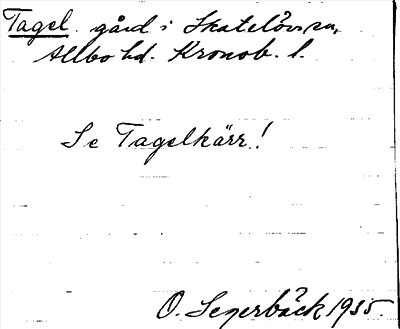 Tagel gård i Skatelövs sn,
Allbo hd. Kronob. l.
Se Tagelkärr!
O. Segerbäck 1935.